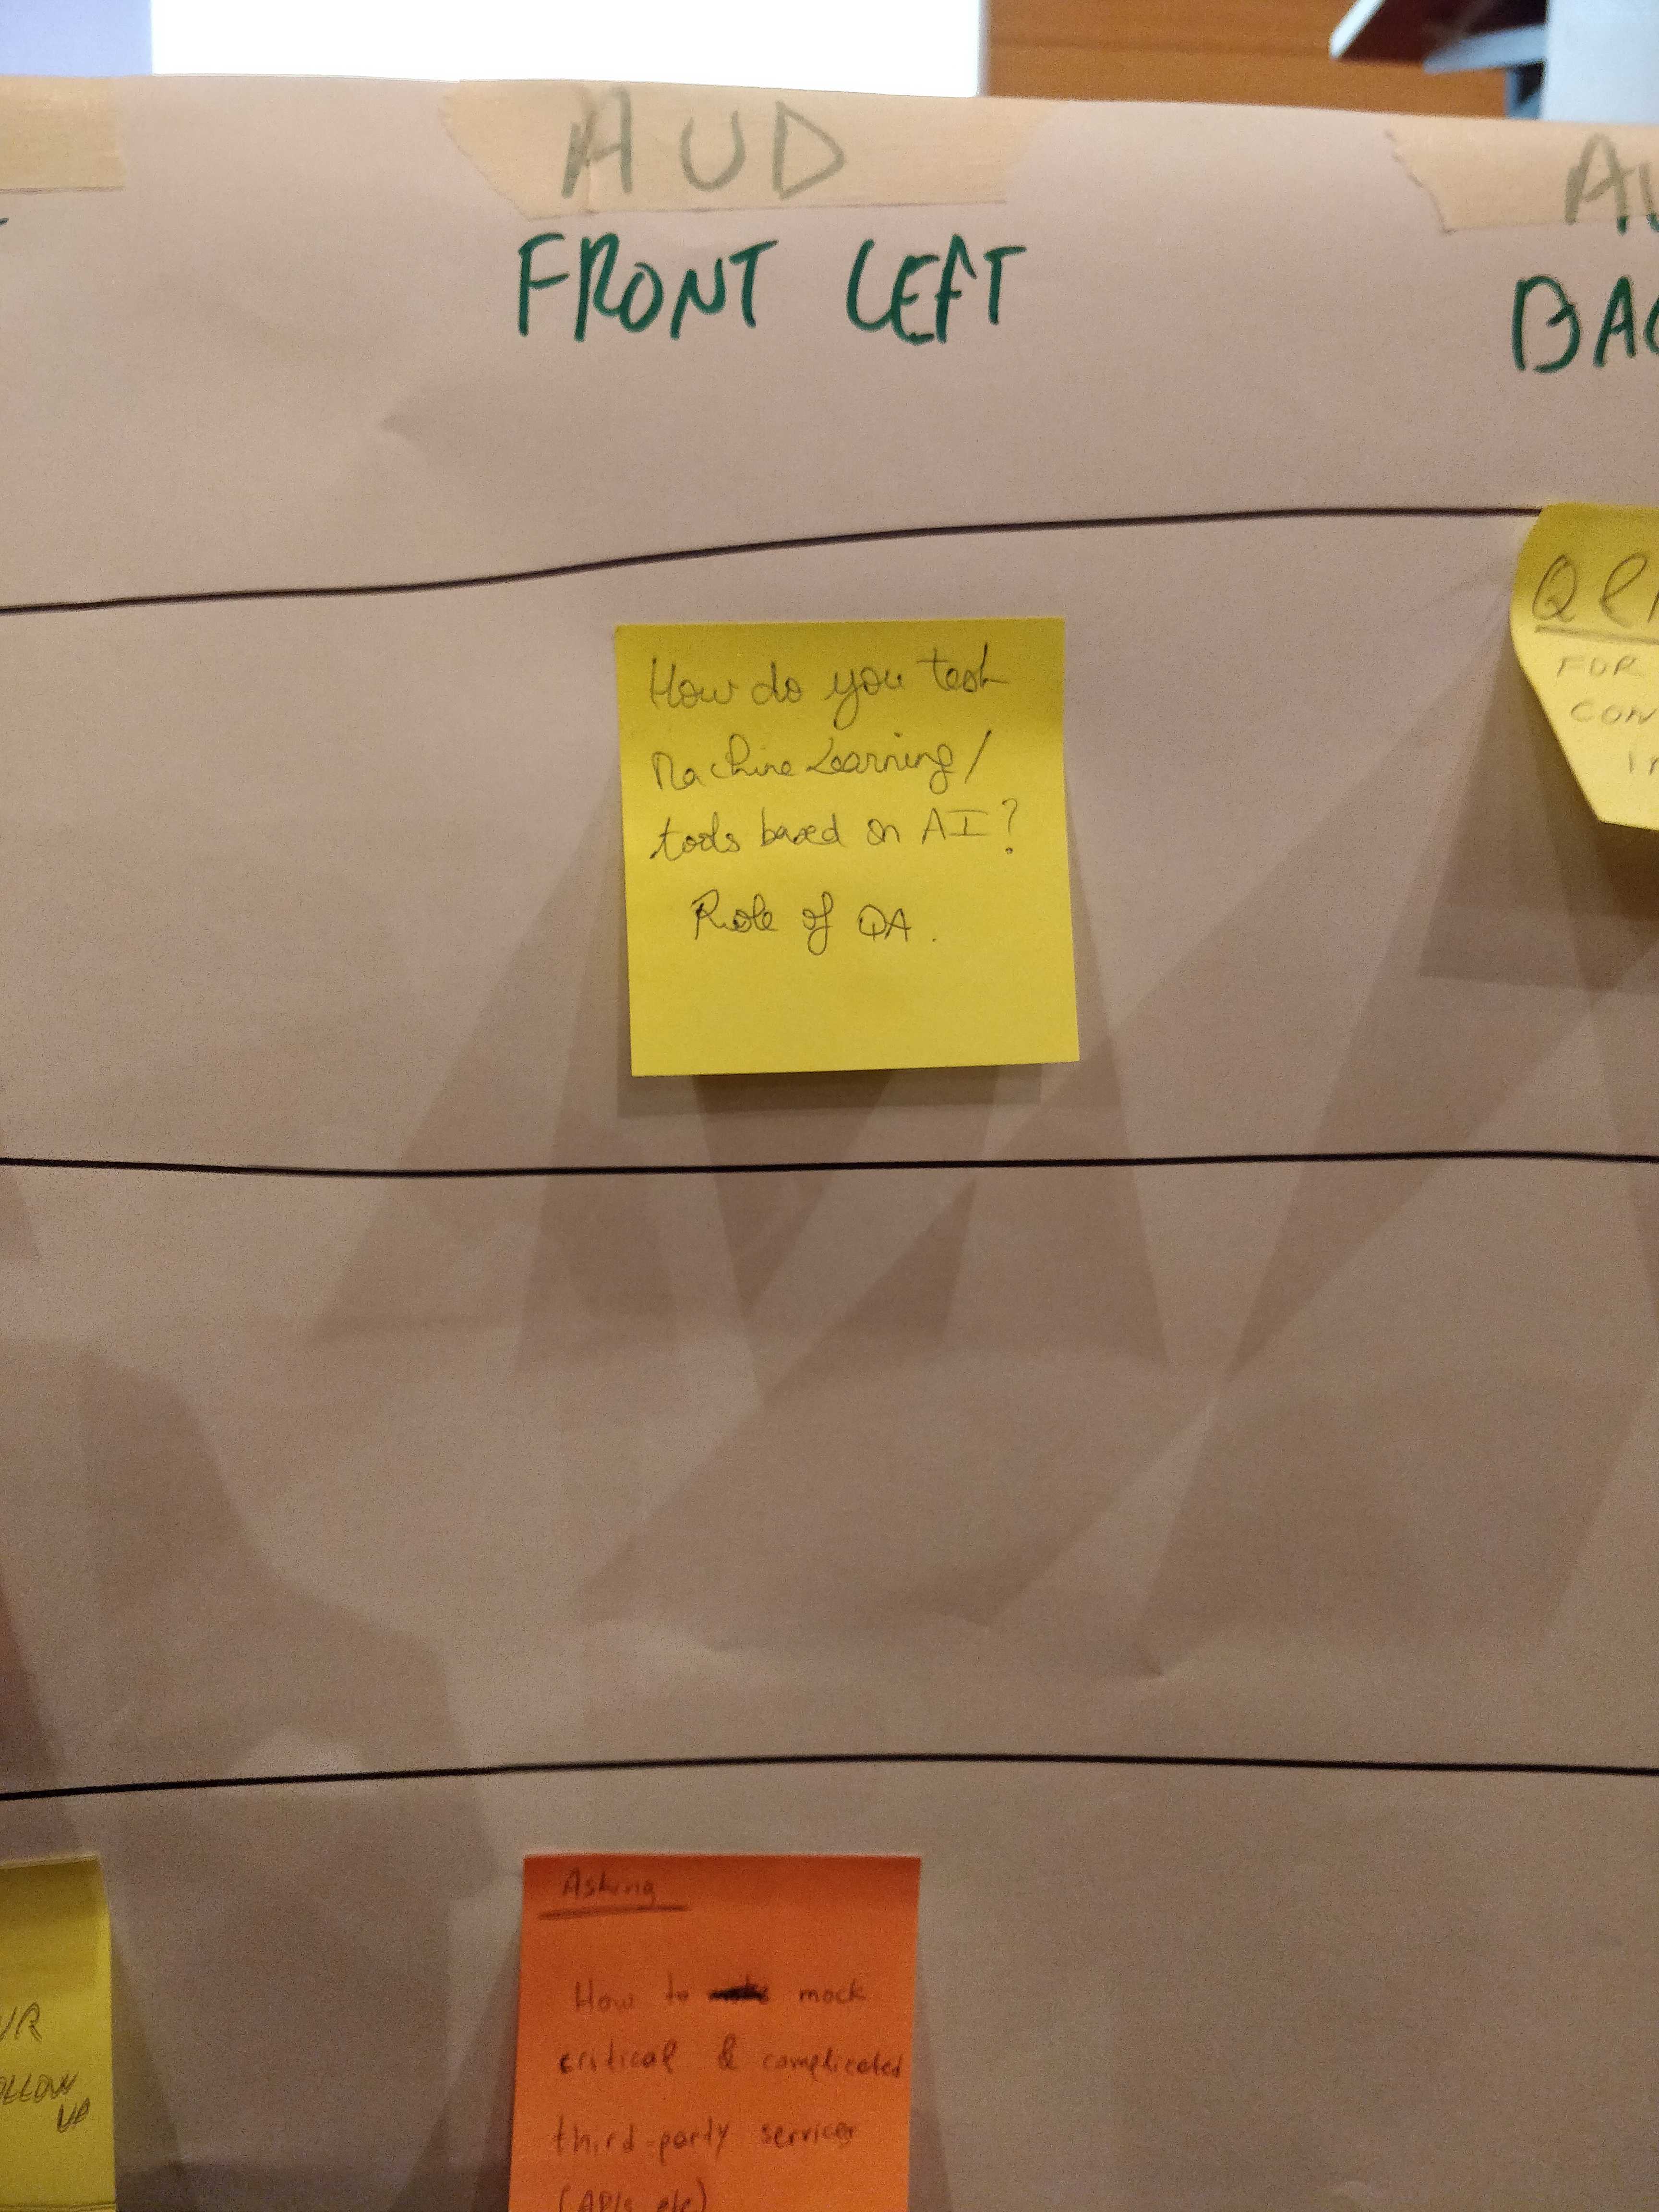 AUD
FRONT LEFT
BAC
How do you test
Machine Learning/
tools based on AI?
Role of QA.
FOR
CON
UR
OLLOW
UP
Asking
How to mock
critical & complicated
third-party services
(APIs etc)